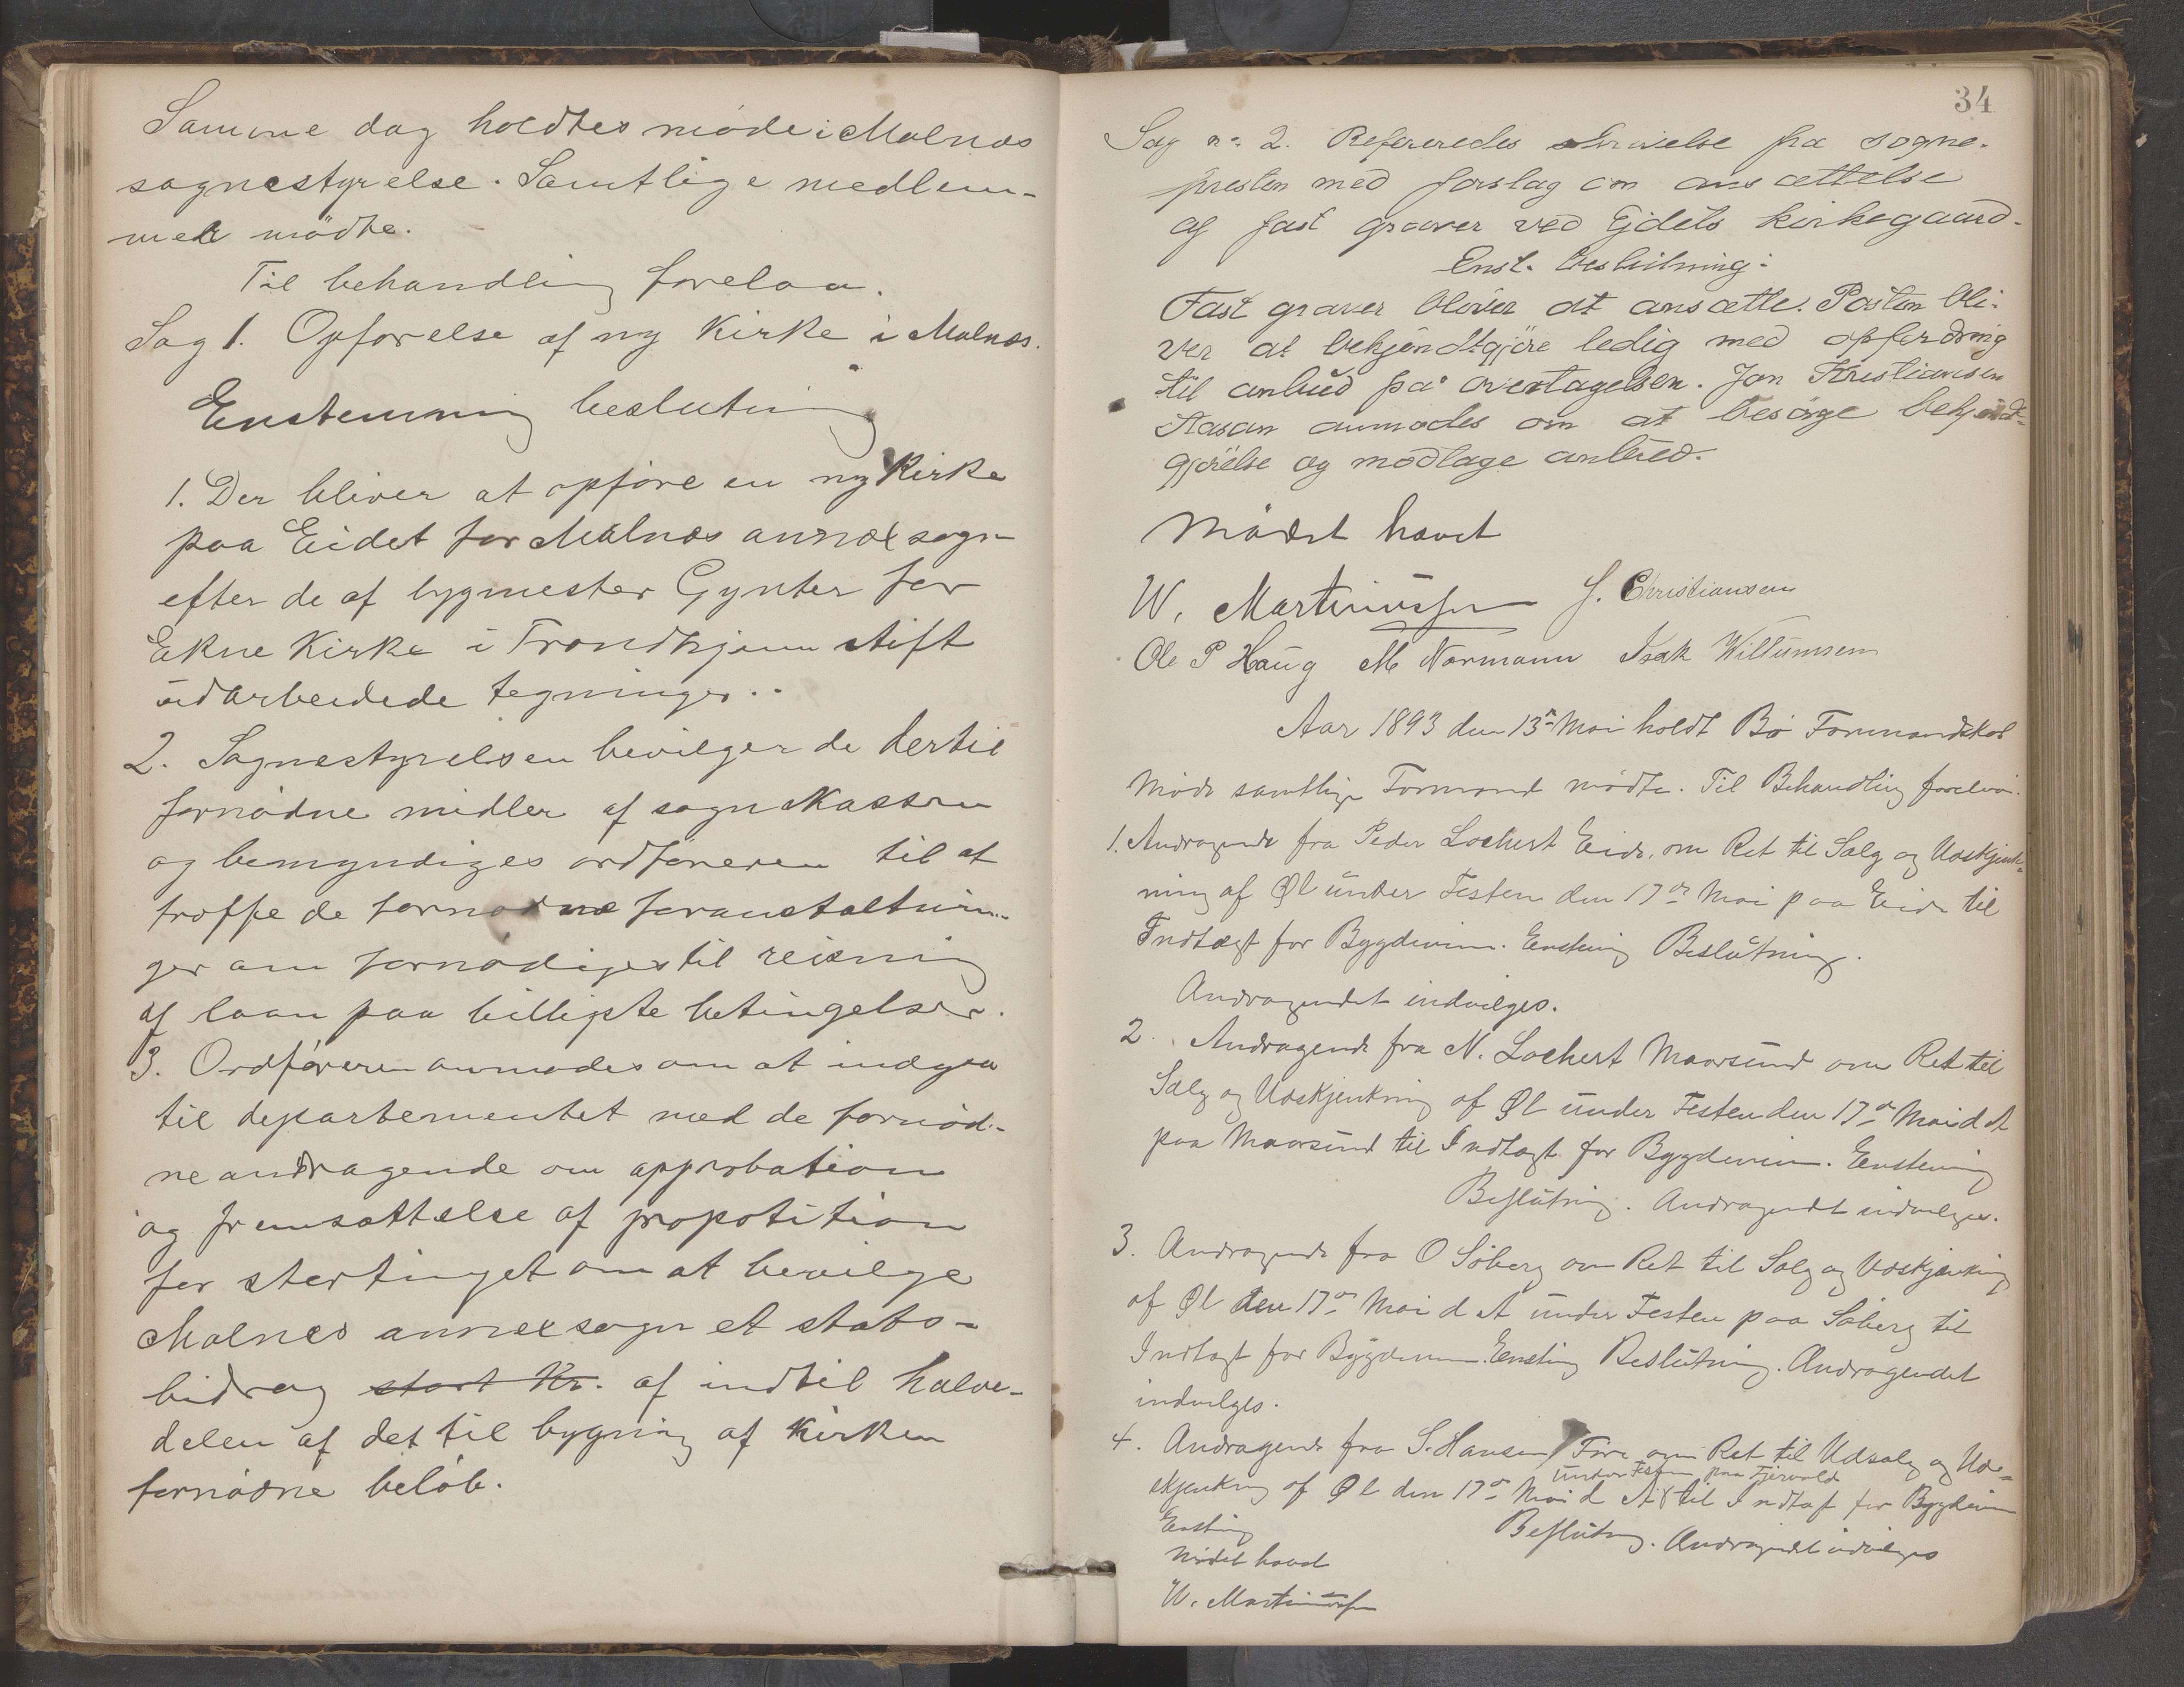 Samme dag holdtes møde i Malnæs
sognestyrelse. Samtlige medlem-
mer mödte.
Til behandling forelaa.
Sag 1. Opførelse af ny Kirke i Malnæs.
Enstemmig beslutning
1. Der bliver at opføre en ny Kirke
paa Eidet for Malnæs annexsogn
efter de af bygmester Gynter for
Ekne Kirke i Trondhjem stift
udarbeidede tegninger..
2. Sognestyrelsen bevilger de dertil
fornødne midler af sognekassen
og bemyndiges ordføreren til at
træffe de fornødne foranstaltnin-
ger om fornødiges til reisning
af laan paa billigste betingelser.
3. Ordføreren anmodes om at indgaa
til departementet med de fornød-
ne andragende om approbation
og fremsættelse af propotition
for stortinget om at bevilge
Malnes annexsogn et stats-
bidrag stort Kr. af indtil halve-
delen af det til bygning af kirken
fornødne beløb.
34
Sag no 2. Refereredes skrivelse fra sogne-
presten med forslag om ansættelse
af fast graver ved Ejdets kirkegaard.
Enst. beslutning:
Fast graver bliver at ansætte. Posten bli-
ver at bekjendtgjøre ledig med opfordring
til anbud på overtagelsen. Jan Kristiansen
Aasan anmodes om at besørge bekjendt-
gjørelse og modtage anbud.
Mødet hævet
W. Martinussen J. Christiansen
Ole P Haug M Normann Isak Willumsen
Aar 1893 den 13de Mai holdt Bø Formandskab
Møde samtlige Formænd mødte. Til Behandling forelaa.
1. Andragende fra Peder Lochert Eide, om Ret til Salg og Udskjenk-
ning af Øl under Festen den 17de Mai paa Eide til
Indtægt for Bygdevein. Enstemig Beslutning.
Andragendet indvilges.
2. Andragende fra N. Lochert Maarsund om Ret til
Salg og Udskjenkning af Øl under Festen den 17de Mai d A
paa Maarsund til Indtægt for Bygdevein. Enstemig
Beslutning. Andragendet indvilges.
3. Andragende fra O Söberg om Ret til Salg og Udskjenkning
af Øl den 17de Mai d A under Festen paa Søberg til
Indtægt for Bygdevein. Enstemig Beslutning. Andragendet
indvilges.
4. Andragende fra S. Hansen Føre om Ret til Udsalg og Ud-
under Festen paa Fjærvold
skjenkning af Øl den 17de Mai d A til Indtægt for Bygdevein
Enstemig Beslutning. Andragendet indvilges
Mødet hævet
W. Martinussen